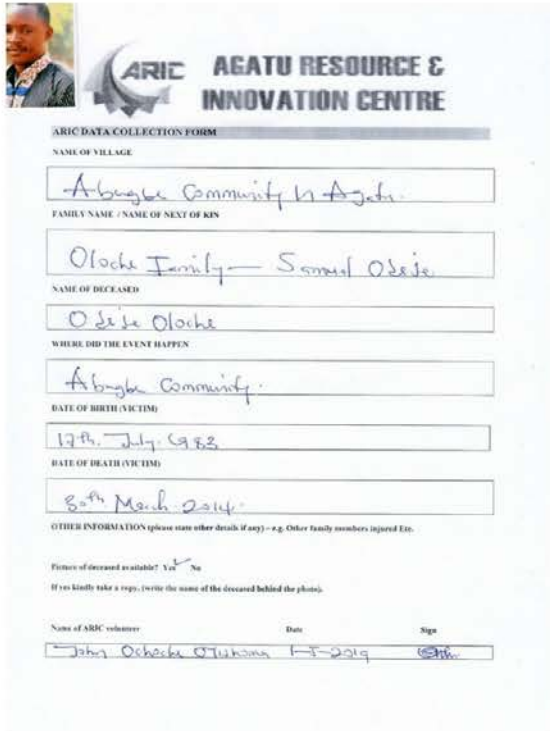 ARIC AGATU RESOURCE &
INNOVATION CENTRE
ARIC DATA COLLECTION FORM
NAME OF VILLAGE
Abugbe Community In Agatu.
FAMILY NAME / NAME OF NEXT OF KIN
Oloche Family - Samuel Odeje
NAME OF DECEASED
Odeje Oloche
WHERE DID THE EVENT HAPPEN
Abugbe Community.
DATE OF BIRTH (VICTIM)
17th. July. 1983
DATE OF DEATH (VICTIM)
30th March 2014.
OTHER INFORMATION (please state other details if any) – e.g. Other family members injured Etc.
Picture of deceased available? Yes No
If yes kindly take a copy. (write the name of the deceased behind the photo).
Name of ARIC volunteer Date Sign
John Ochoche 2019